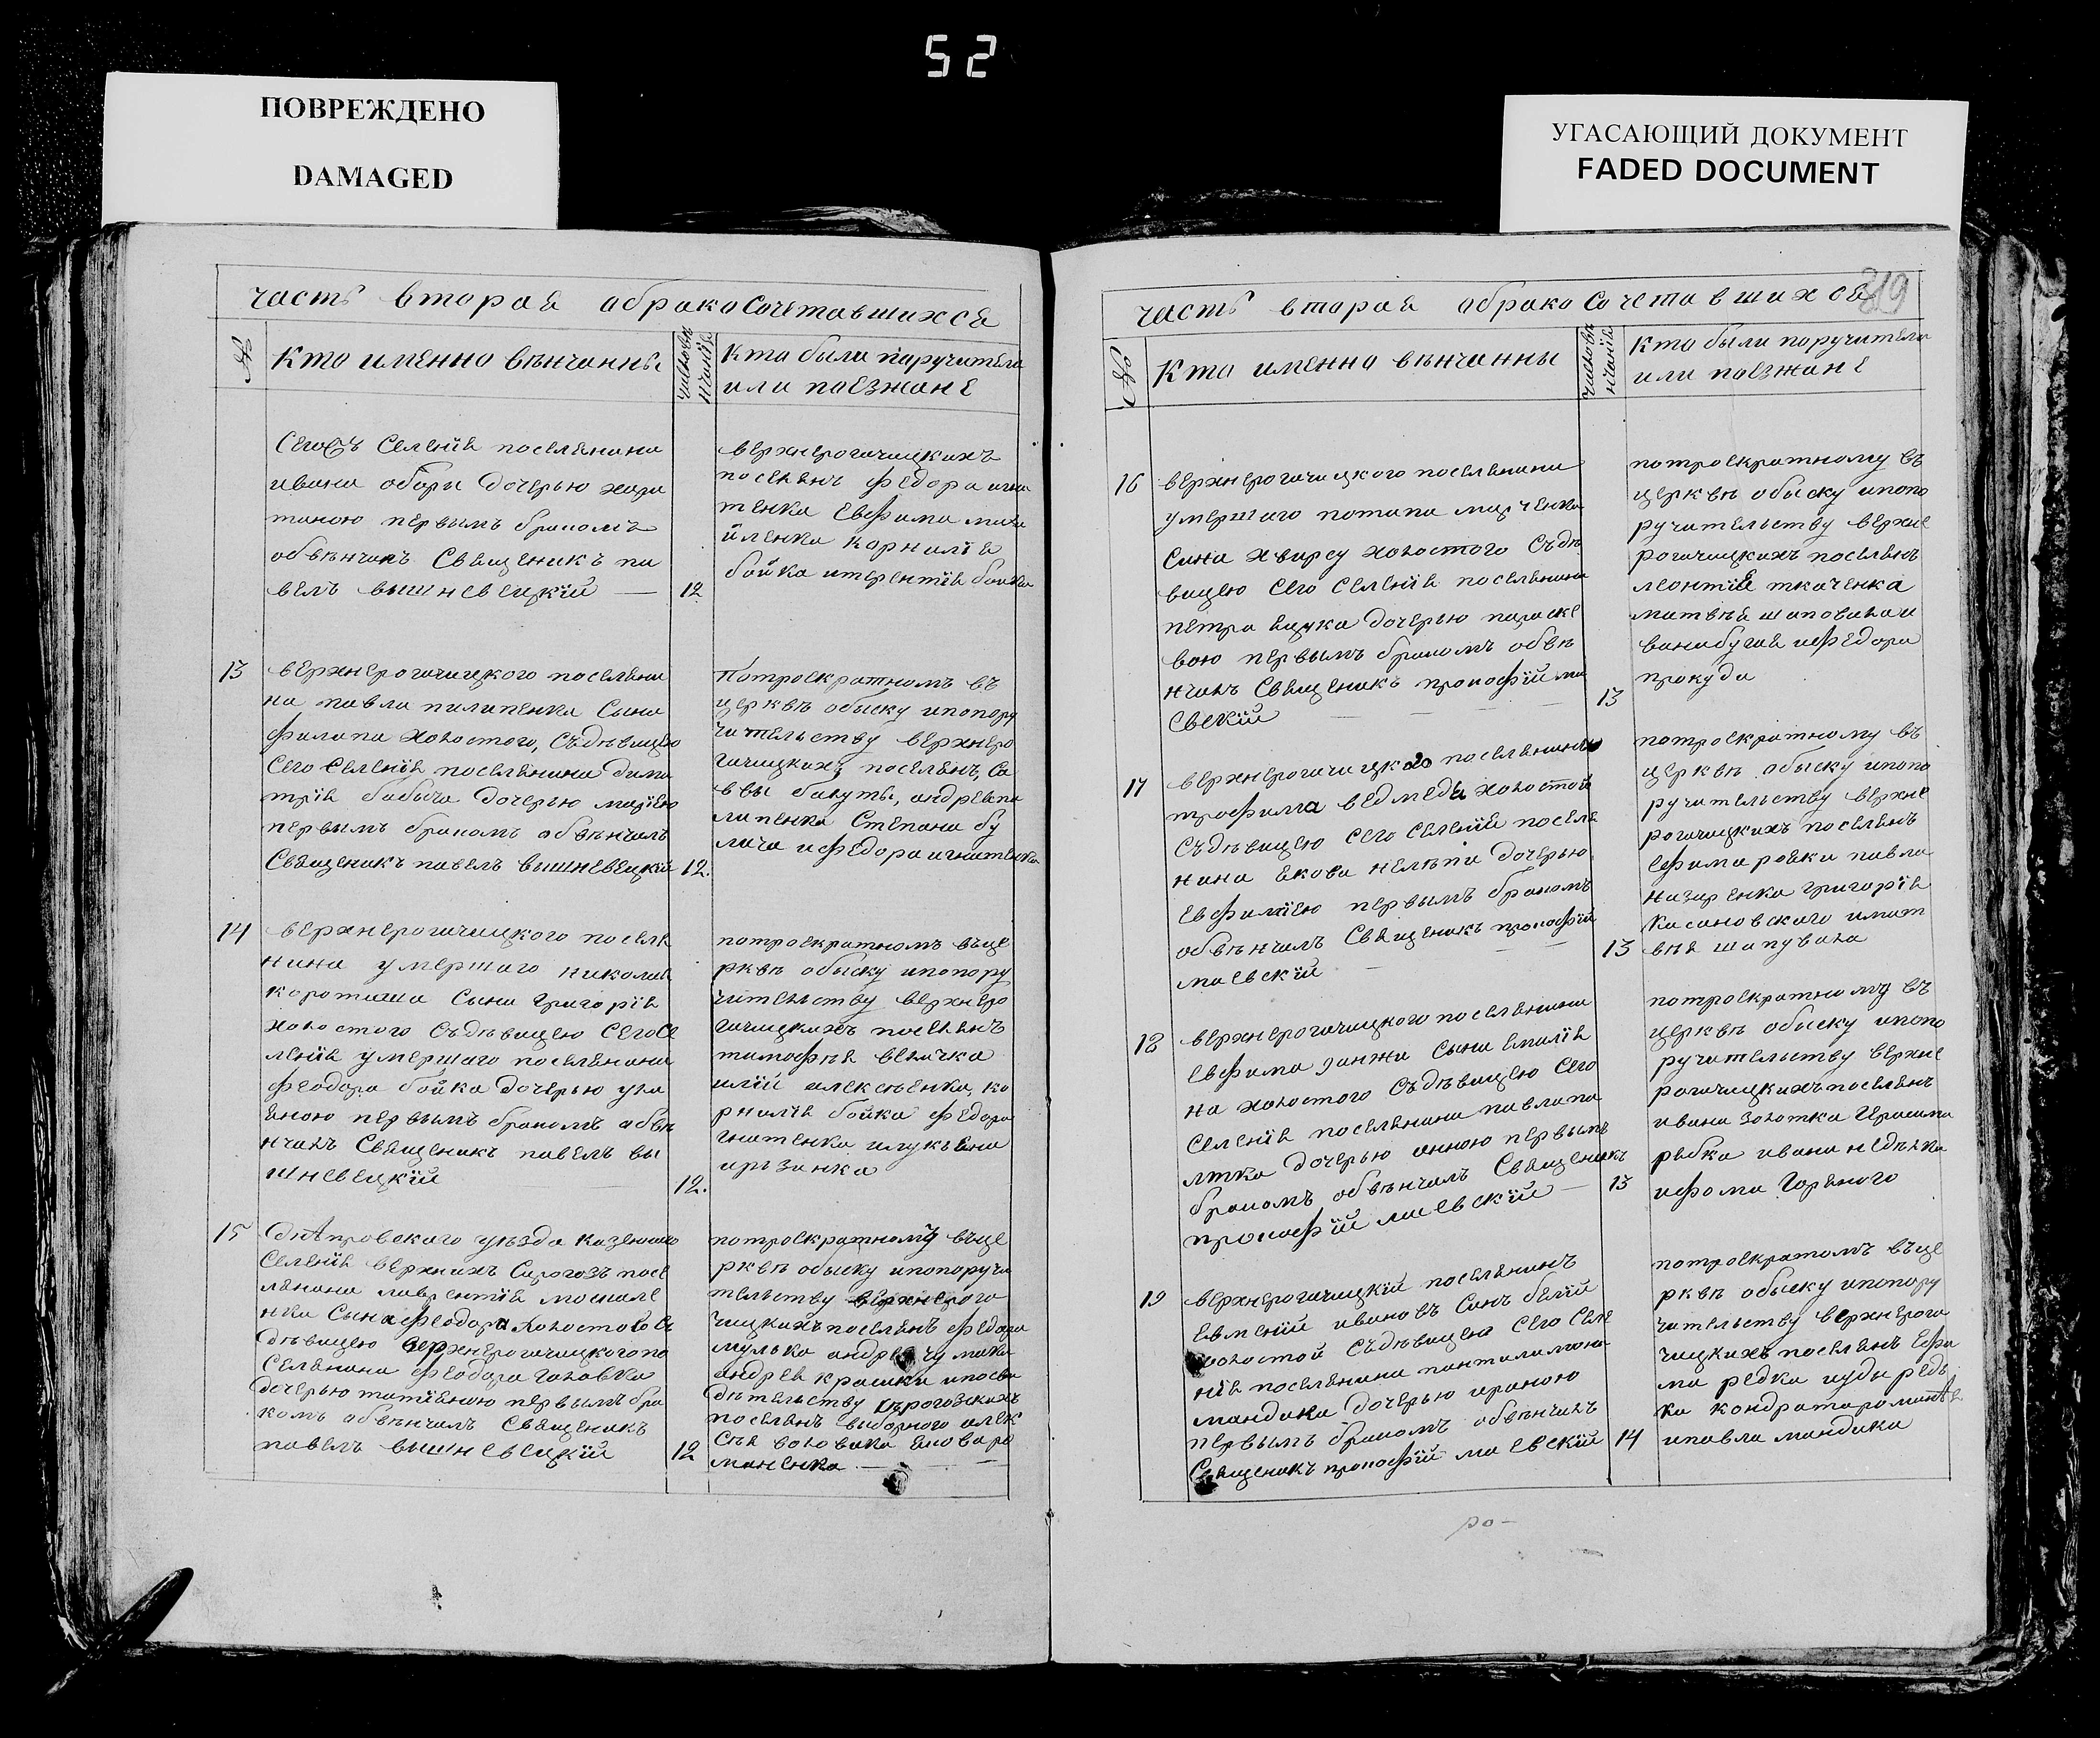 52
ПОВРЕЖДЕНО
DAMAGED
УГАСАЮЩИЙ ДОКУМЕНТ
FADED DOCUMENT
часть вторая обракосочетавшихся
№
Кто именно вѣнчанны
Кто были поручители
или поезжане
Сегожъ Селенія поселянина
ивана обори дочерью хари
тиною первымъ бракомъ
обвѣнчалъ Священикъ па
велъ вышневецкій — 12
верхнерогачицкихъ
поселянъ федора игна
тенка Евфима миха
йленка корнилія
бойка итерентія бойка
13
верхнерогачицкого поселяни
на павла пилипенка Сына
филипа холостого, Съдѣвицею
Сего Селенія поселянина дими
трія бабыча дочерью маріею
первымъ бракомъ обвѣнчалъ
Священикъ павелъ вышневецкій 12.
Потроекратномъ въ
церквѣ обыску ипопору
чительству верхнеро
гачицкихъ поселянъ, Са
ввы бакуты, андреяпи
липенка Степана бу
лича ифедора игнатенка
14
верхнерогачицкого поселя
нина умершаго николая
короташа Сына григорія
холостого Съдѣвицею СегоСе
ленія умершаго поселянина
феодора бойка дочерью улі
яною первымъ бракомъ обвѣ
нчалъ Священикъ павелъ вы
шневецкій 12.
потроекратномъ въце
рквѣ обыску ипопору
чительству верхнеро
гачицкихъ поселянъ
тимофѣя величка
иліи алексѣенка, ко
рнилія бойка федора
гнатенка илукяна
15
Днѣпровского уѣзда казенного
Селенія верхнихъ Сирогозъ посе
лянина лаврентія москале
нка Сына феодора холостого Съ
дѣвицею верхнерогачицкого по
Селянина феодора головка
дочерью татіяною первымъ бра
комъ обвѣнчалъ Священикъ
павелъ вышневецкій 12
потроекратному въце
рквѣ обыску ипопоручи
тельству верхнерога
чицкихъ поселянъ федора
мулько андрея чумака
андрея крошки ипосви
дѣтельству Сирогозскихъ
поселянъ выборного алек
Сѣя воловика якова ро
маненка
319
часть вторая обракосочетавшихся
№
Кто именно вѣнчанны
Кто были поручители
или поезжане
16
верхнерогачицкого поселянина
умершаго потапа марченка
Сина хвирсу холостого Съдѣ
вицею Сего Селенія поселянина
петра дочерью параске
вою первымъ бракомъ обвѣ
нчалъ Священикъ прокофій ма
евскій 13
потроекратному въ
церквѣ обыску ипопо
ручительству верхне
рогачицкихъ поселянъ
леонтія ткаченка
матвѣя шаповала и
ванабугая ифедора
прокуди
17
верхнерогачицкого поселянина
трофима ведмедя холостой
Съдѣвицею Сего Селенія поселя
нина якова нелѣпи дочерью
Евфиміею первымъ бракомъ
обвѣнчалъ Священикъ прокофій
маевскій 13
потроекратному въ
церквѣ обыску ипопо
ручительству верхне
рогачицкихъ поселянъ
Ефима ровки павла
назаренка григорія
Касановского имат
вѣя шапувала
18
верхнерогачицкого поселянина
Евфима ганжи Сына Емилія
на холостого Съдѣвицею Сего
Селенія поселянина павлапи
лтка дочерью анною первымъ
бракомъ обвѣнчалъ Священикъ
прокофій маевскій — 13
потроекратному въ
церквѣ обыску ипопо
ручительству верхне
рогачицкихъ поселянъ
ивана золотка герасима
рябка ивана недѣлка
ифоми горяного
19
верхнерогачицкій поселянинъ
Евменій ивановъ Синъ белій
холостой Съдѣвицею Сего Селе
нія поселянина пантилимона
мандика дочерью ириною
первымъ бракомъ обвѣнчалъ
Священикъ прокофій маевскій 14
потроекратомъ въце
рквѣ обыску ипопору
чительству верхнерога
чицкихъ поселянъ Ефи
ма редки иуды редь
ки кондратароманѣя
ипавла мандика
ро-